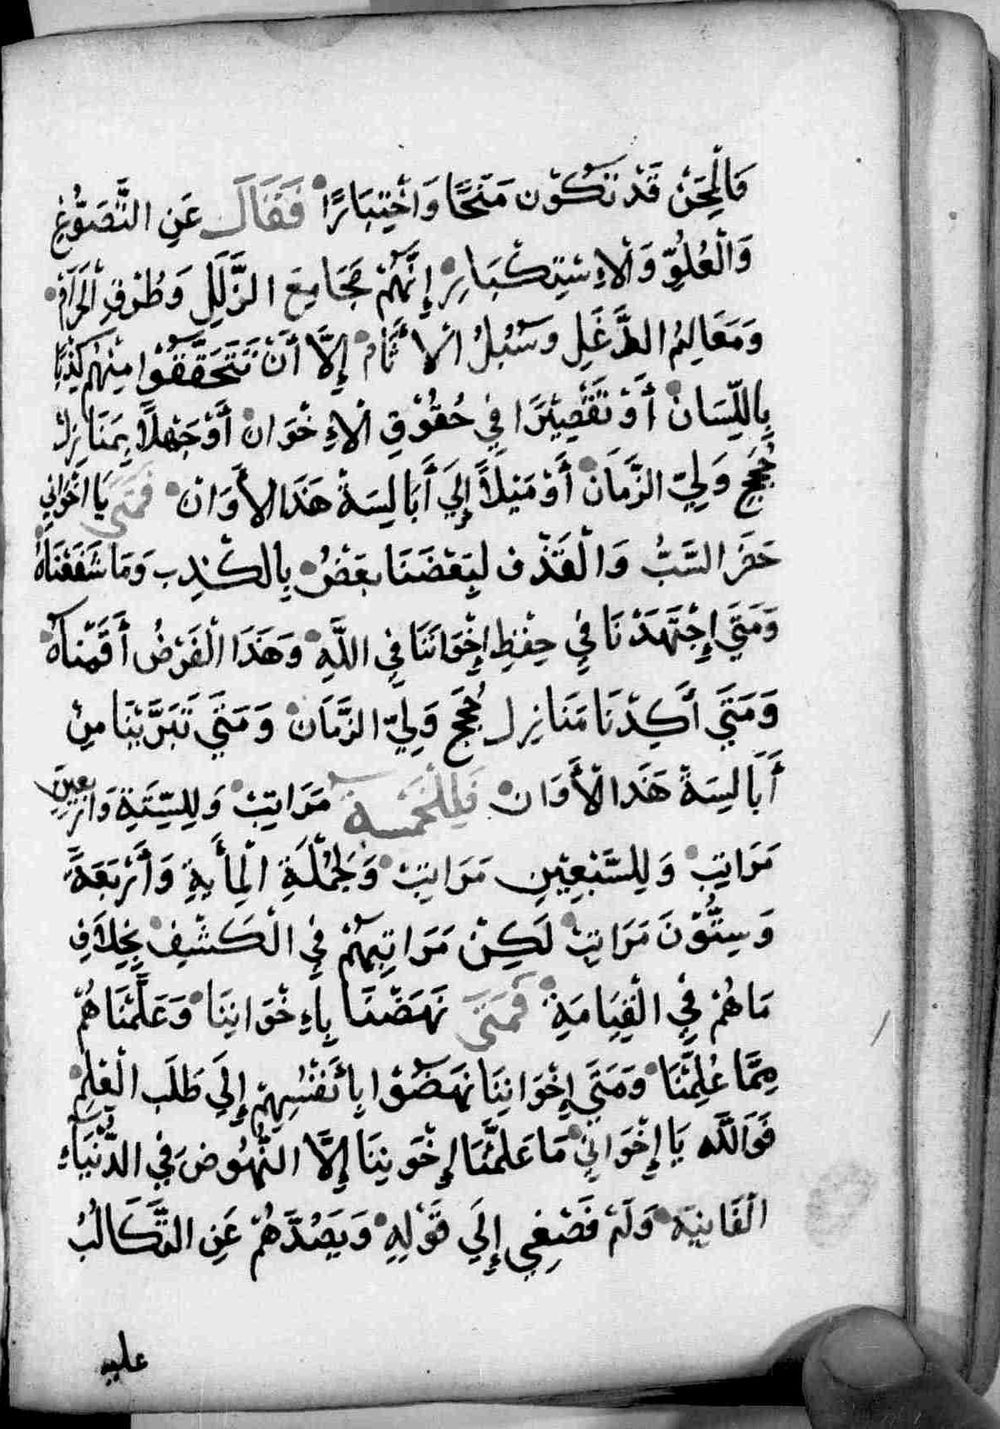 فَالْمِحَنْ قَدْ تَكُوْن مَنَحًا وَاخْتِبَارًا فَقَالَ عَنِ التَّصَوُّغِ
وَالْعُلُوِّ وَالْاِسْتِكْبَارِ إِنَّهُمْ مَجَامِعَ الزَّلَلِ وَطُرْقِ الْحَرَامْ
وَمَعَالِمُ الدَّغَلِ وَسُبُلُ الْاثَامْ إِلَّا أَنْ تَتَحَقَّقُوْا مِنْهُم كَذِبًا
بِاللِّسَانْ أَوْ تَقْصِيْرًا فِي حُقُوْقِ الْاِخْوَانْ أَوْ جَهْلًا بِمَنَازِل
حُجَجِ وَلِيّ الزَّمَانْ أَوْ مَيْلًا إِلَى أَبَالِسَةْ هَذَا الْأَوَانْ فَمَتَى يَا اخْوَانِي
حَضَرَ السَّبُّ وَالْقَذْف لِبَعْضَنَا بعَضُ بِالكْذِب وَمَا شَفَعْنَاهُ
وَمَتَى إِجْتَهَدْنَا فِي حِفْظِ إِخْوَانَنَا فِي اللَّهِ وَهَذَا الْفَرْضُ أَقَمْنَاهُ
وَمَتَى أَكِدْنَا مَنَازِل حُجَجِ وَلِيّ الزَّمَانْ وَمَتَى تَبَرَّيْنَا مِنْ
أَبَالِسَةْ هَذَا الْأَوَانْ فَلِلْخَمْسَة مَرَاتِبْ وَلِلسِّتَةِ وَارْبَعِيَن
مَرَاتِبْ وَلِلسَّبْعِيْنِ مَرَاتِبْ وَلِجُمْلَةِ الْمِأَيةِ وَأَرْبَعَةَ
وَسِتُّوْنَ مَرَاتِبْ لَكِنْ مَرَاتِبِهُمْ فِي الْكَشْفِ بِخِلَافِ
مَا هُمْ فِي الْقِيَامَةِ فَمَتَى نَهَضْنَا بِاِخْوَانِنَا وَعَلَّمْنَاهُمْ
مِمَّا عُلِّمْنَا وَمَتَى إِخْوَانِنَا نَهَضُوْا بِأَنْفُسِهِمْ إِلَى طَلَب الْعْلِمْ
فَوَاللَّه يَا إِخْوَانِي مَا عَلَّمْنَا لِإِخْوَنِنَا إِلَّا النُّهُوضَ فِي الدُّنْيَاء
الْفَانِيَه وَلَمْ نَصْغِي إِلَى قَوْلِهِ وَيَصُدَّهُمْ عَنِ التَّكَالُبُ
عليه